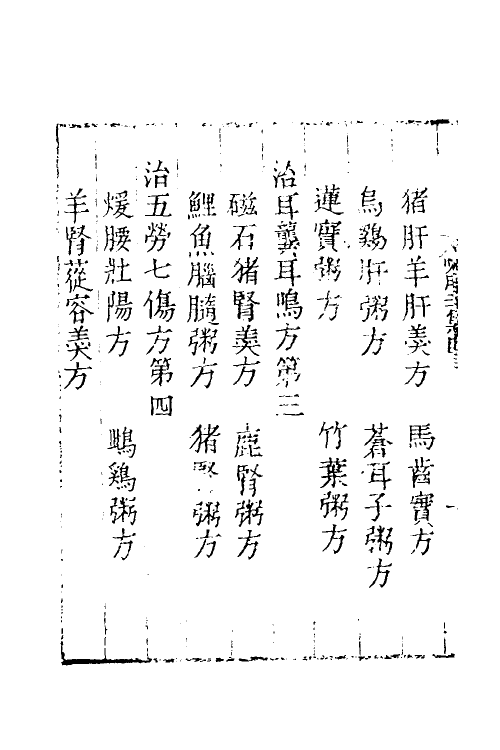 猪肝羊肝羮方　馬齒實方
烏鷄肝粥方　蒼耳子粥方
蓮實粥方　竹葉粥方
治耳聾耳鳴方第三
磁石猪腎羮方　鹿腎粥方
鯉魚腦髓粥方　猪腎粥方
治五勞七傷方第四
煖腰壯陽方　鵶鷄粥方
羊腎蓯容羮方